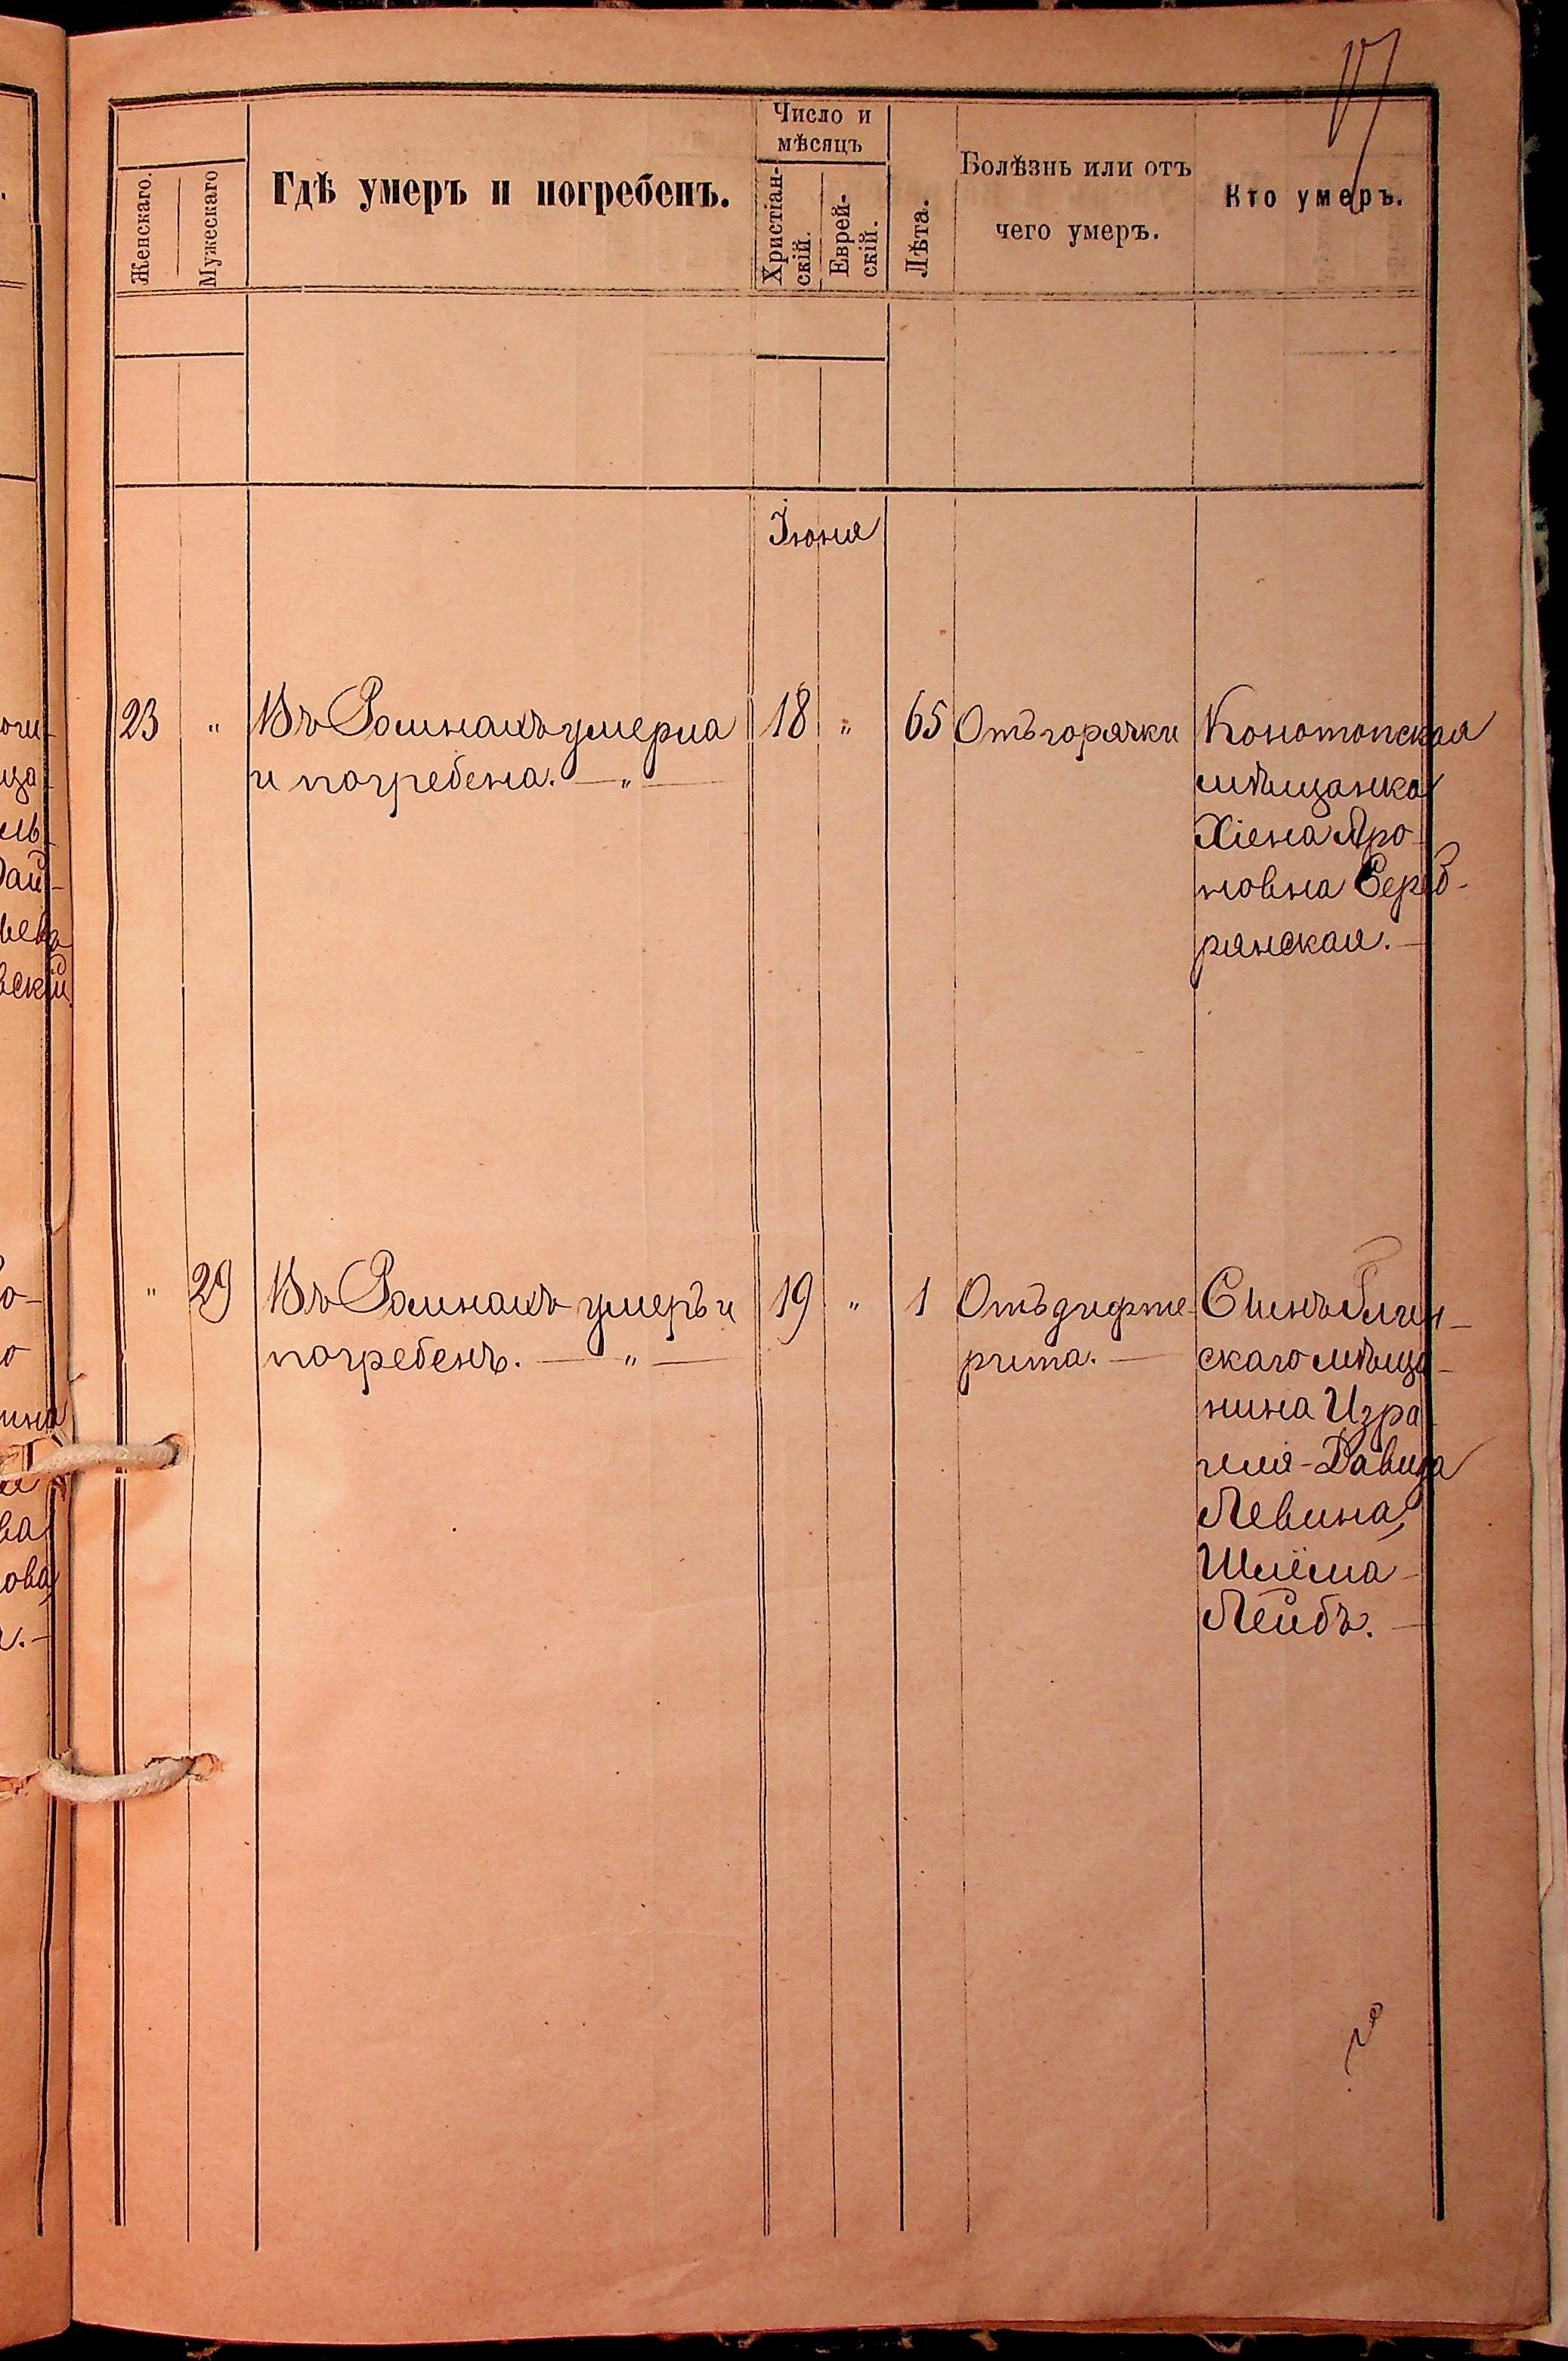 17
Женскаго.
Мужескаго
Гдѣ умеръ и погребенъ.
Число и
мѣсяцъ
Христіан-
скій.
Еврей-
скій.
Лѣта.
Болѣзнь или отъ
чего умеръ.
Кто умеръ.
Іюня
23 " Въ Ромнахъ умерла 18 " 65 Отъ горячки Конотопская
и погребена. — " — мѣщанка
Хіена Аро-
новна Сереб-
рянская. —
" 29 Въ Ромнахъ умеръ и 19 " 1 Отъ дифте- Сынъ
погребенъ. — " — рита. — скаго мѣща-
нина Изра-
иля-Давида
Левина,
Шлёма-
Лейбъ. —